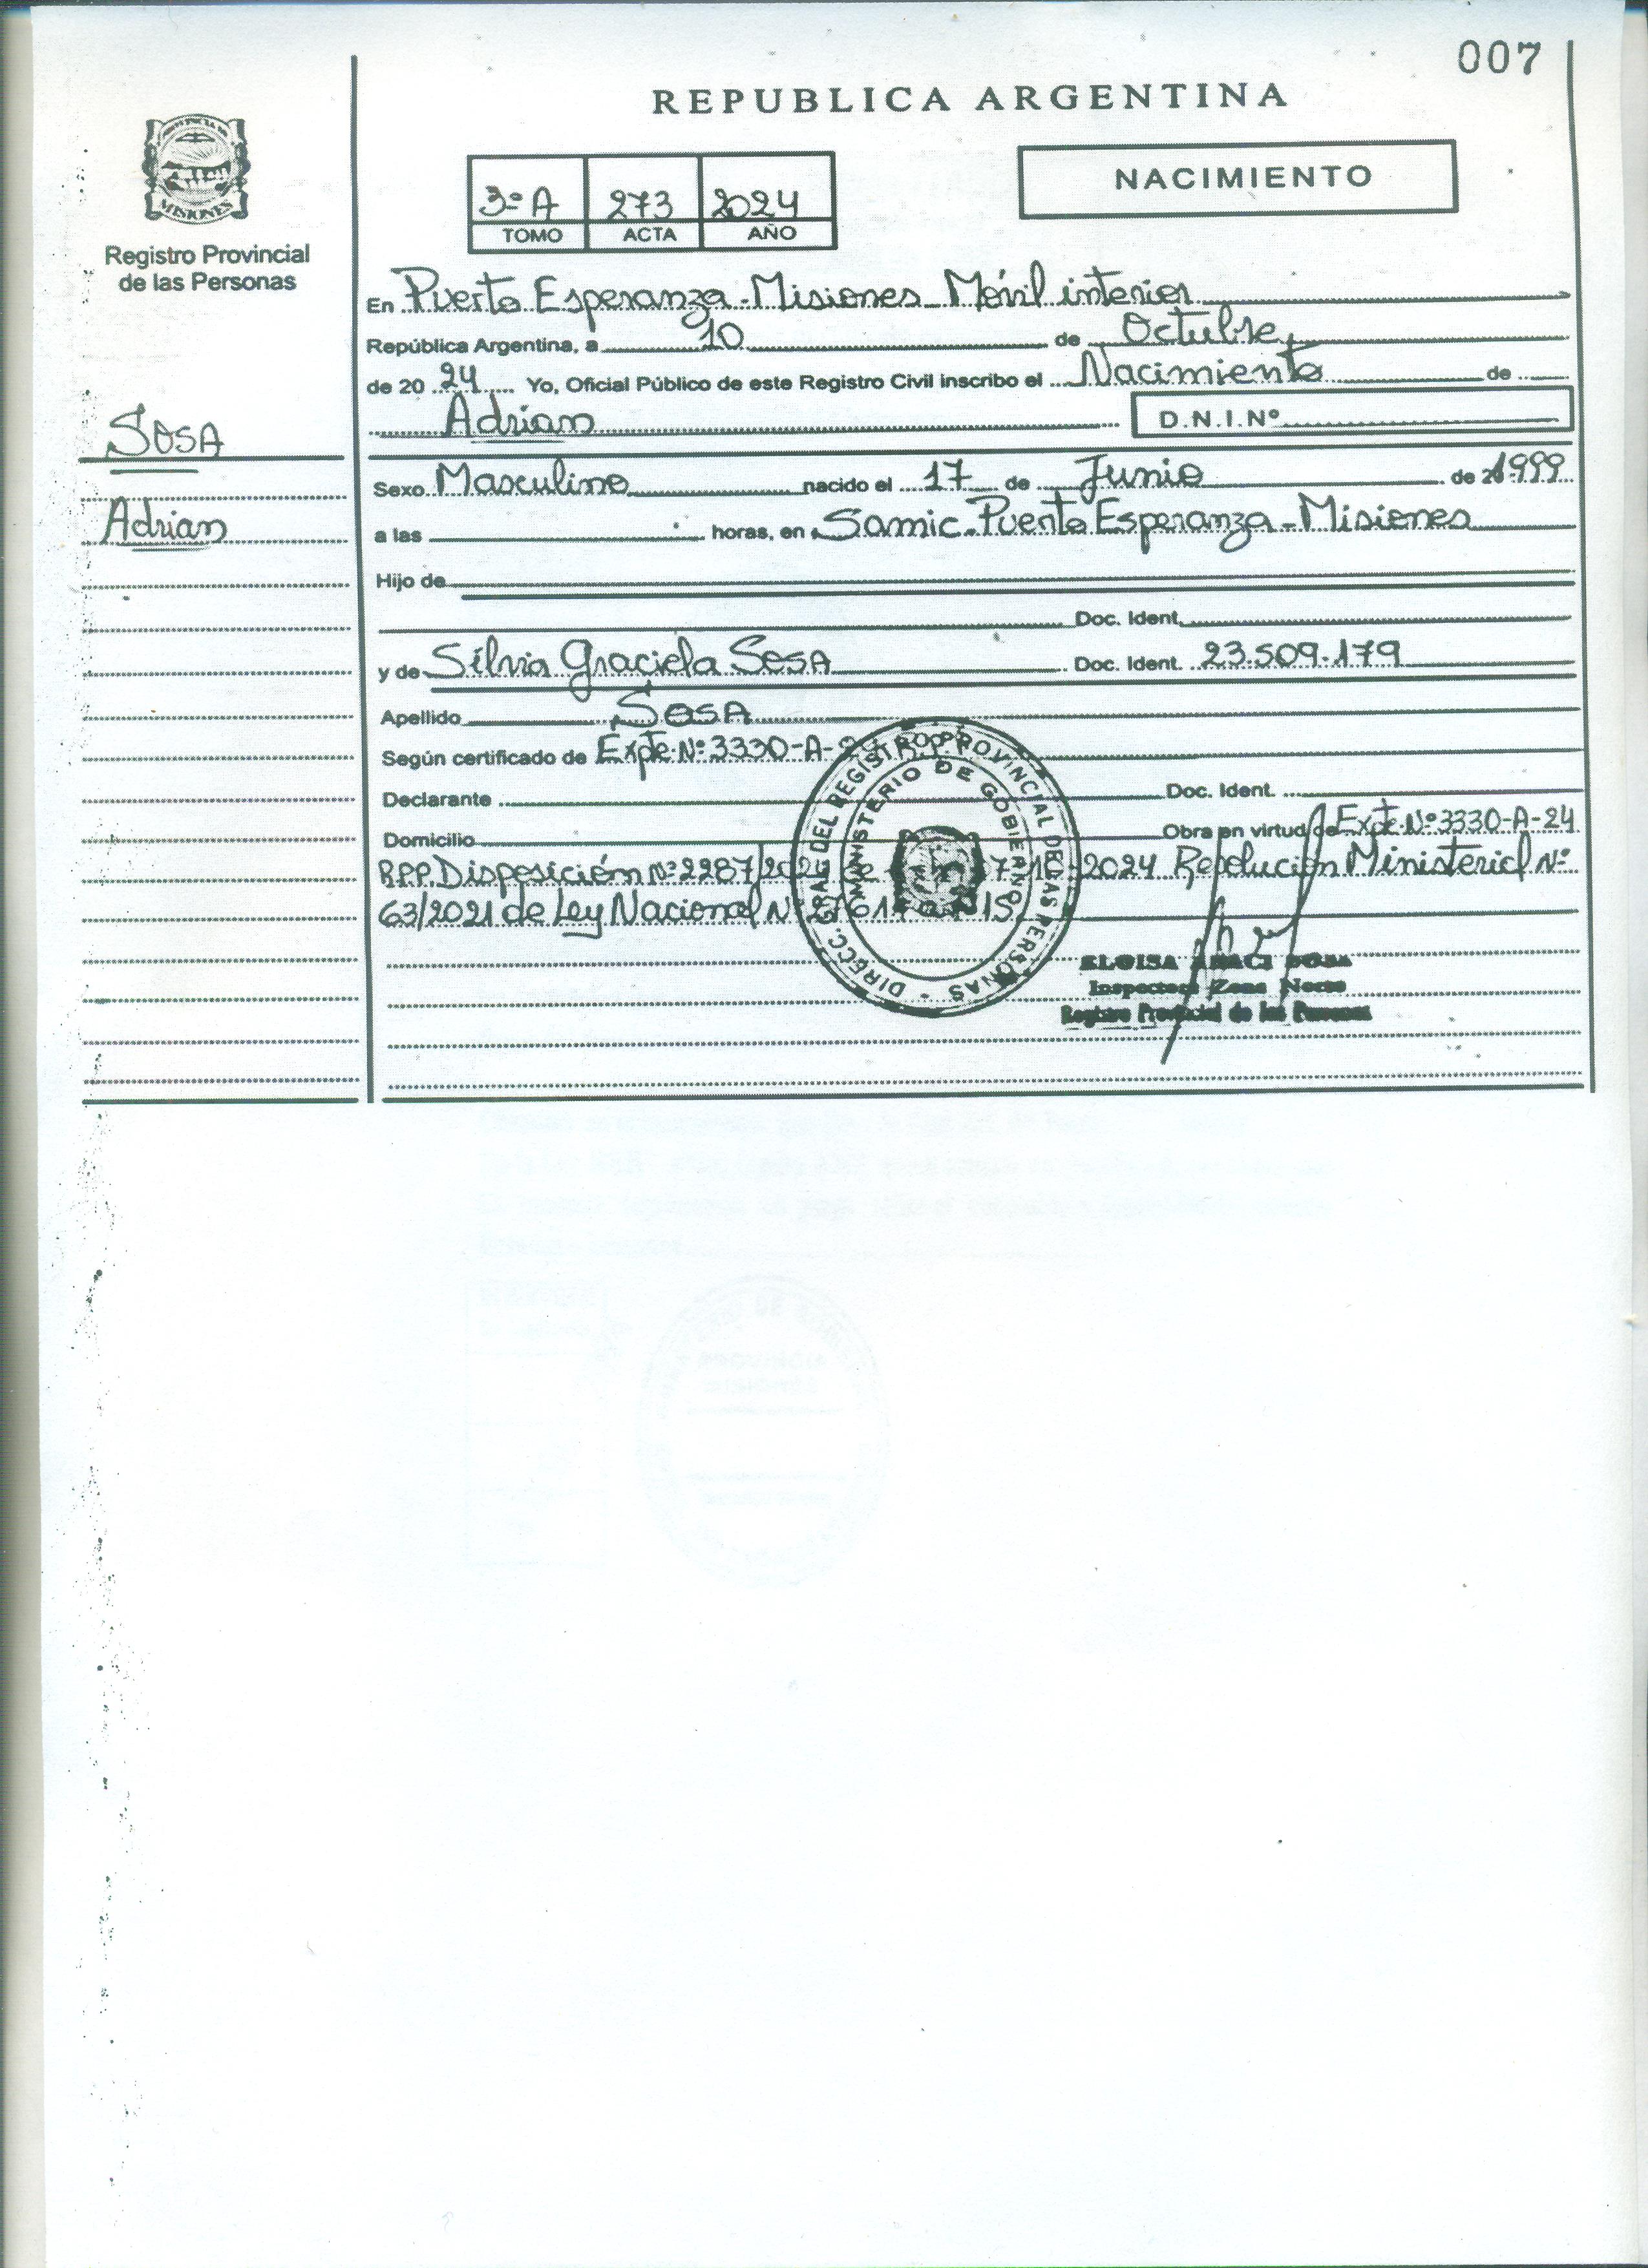 007
REPUBLICA ARGENTINA
PROVINCIA DE
MISIONES
Registro Provincial
de las Personas
3º A 273 2024
TOMO ACTA AÑO
NACIMIENTO
En Puerto Esperanza - Misiones - Móvil interior
República Argentina, a 10 de Octubre
de 20 24 Yo, Oficial Público de este Registro Civil inscribo el Nacimiento de
Adrian D.N.I.Nº
SOSA
Adrian
Sexo Masculino nacido el 17 de Junio de 1999
a las horas, en Samic. Puerto Esperanza - Misiones
Hijo de
Doc. Ident.
y de Silvia Graciela SOSA Doc. Ident. 23.509.179
Apellido SOSA
Según certificado de Expte. Nº 3330-A-
Declarante Doc. Ident.
Domicilio Obra en virtud de Expte. Nº 3330-A-24
R.P.P. Disposición Nº 2287/ 2024 Resolución Ministerial Nº
63/2021 de Ley Nacional Nº
DIRECC. GRAL DEL REGISTRO PROVINCIAL DE LAS PERSONAS
MINISTERIO DE GOBIERNO
ELOISA
Inspectora Zona Norte
Registro Provincial de las Personas